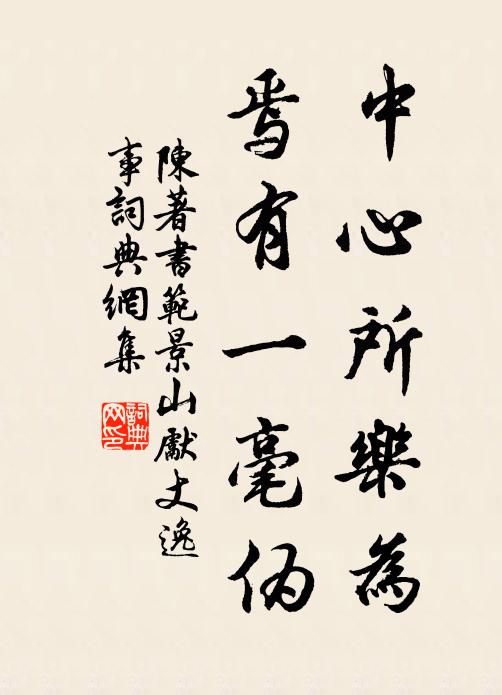 中心所樂為
焉有一毫偽
陳著書範景山獻丈逸
事詞典網集
詞典网印